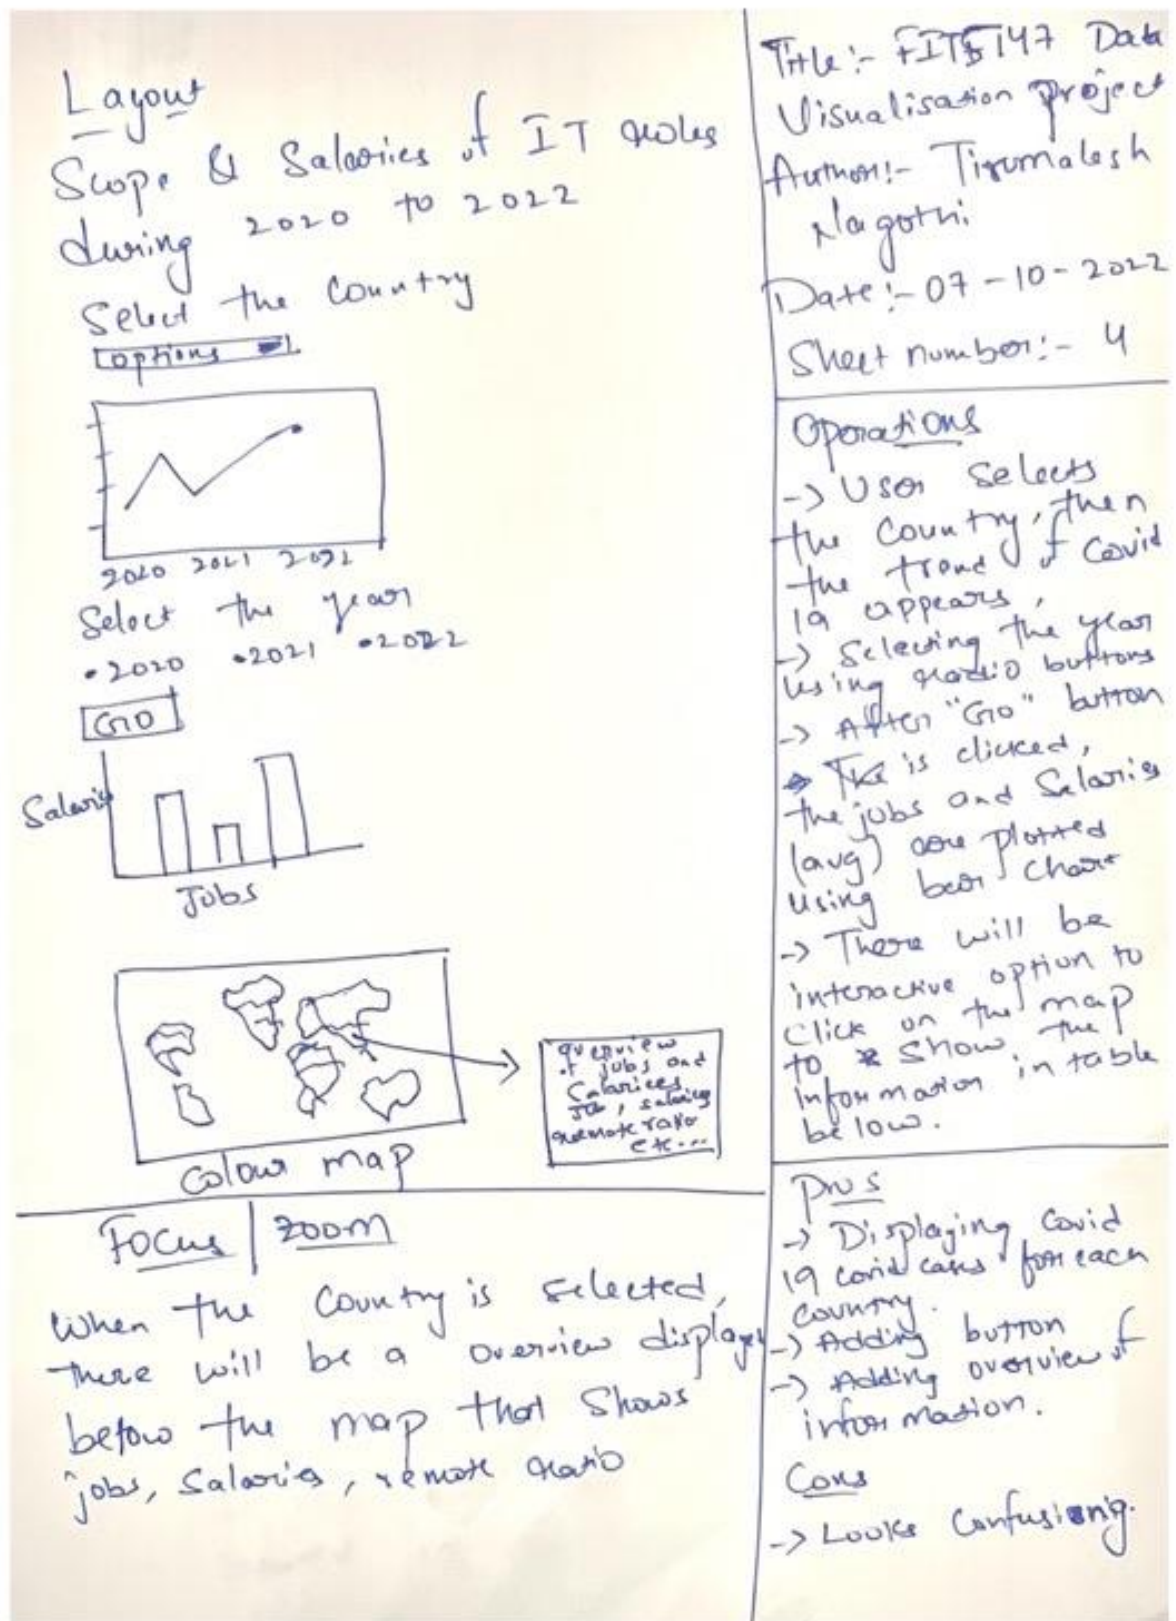 Layout
Scope & Salaries of IT roles
during 2020 to 2022
Select the Country
options
2020 2021 2022
Select the year
•2020 •2021 •2022
GO
Salaries
Jobs
overview
of jobs and
Salaries
Job, salaries
remote ratio
etc...
Colour map
Focus | zoom
When the Country is selected,
there will be a overview displayed
below the map that Shows
jobs, Salaries, remote ratio
Title:- FIT5147 Data
Visualisation Project
Author:- Tirumalesh
Nagothi
Date:- 07-10-2022
Sheet number:- 4
Operations
-> User Selects
the Country, then
the trend of Covid
19 appears,
-> Selecting the year
using radio buttons
-> After "Go" button
is clicked,
the jobs and Salaries
(avg) are plotted
using bar chart
-> There will be
interactive option to
Click on the map
to show the
information in table
below.
Pros
-> Displaying Covid
19 covid cases for each
Country.
-> Adding button
-> Adding overview of
information.
Cons
-> Looks Confusionig.